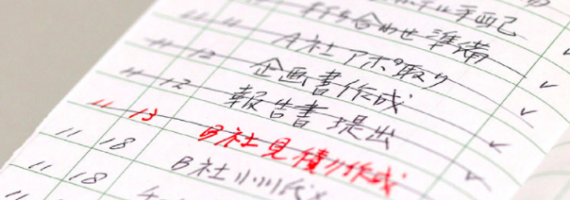 手配
打ち合わせ準備
11 11 A社アポ取り ✓
11 12 企画書作成 ✓
11 12 報告書提出 ✓
11 13 B社見積り作成 ✓
11 18 B社
11 18